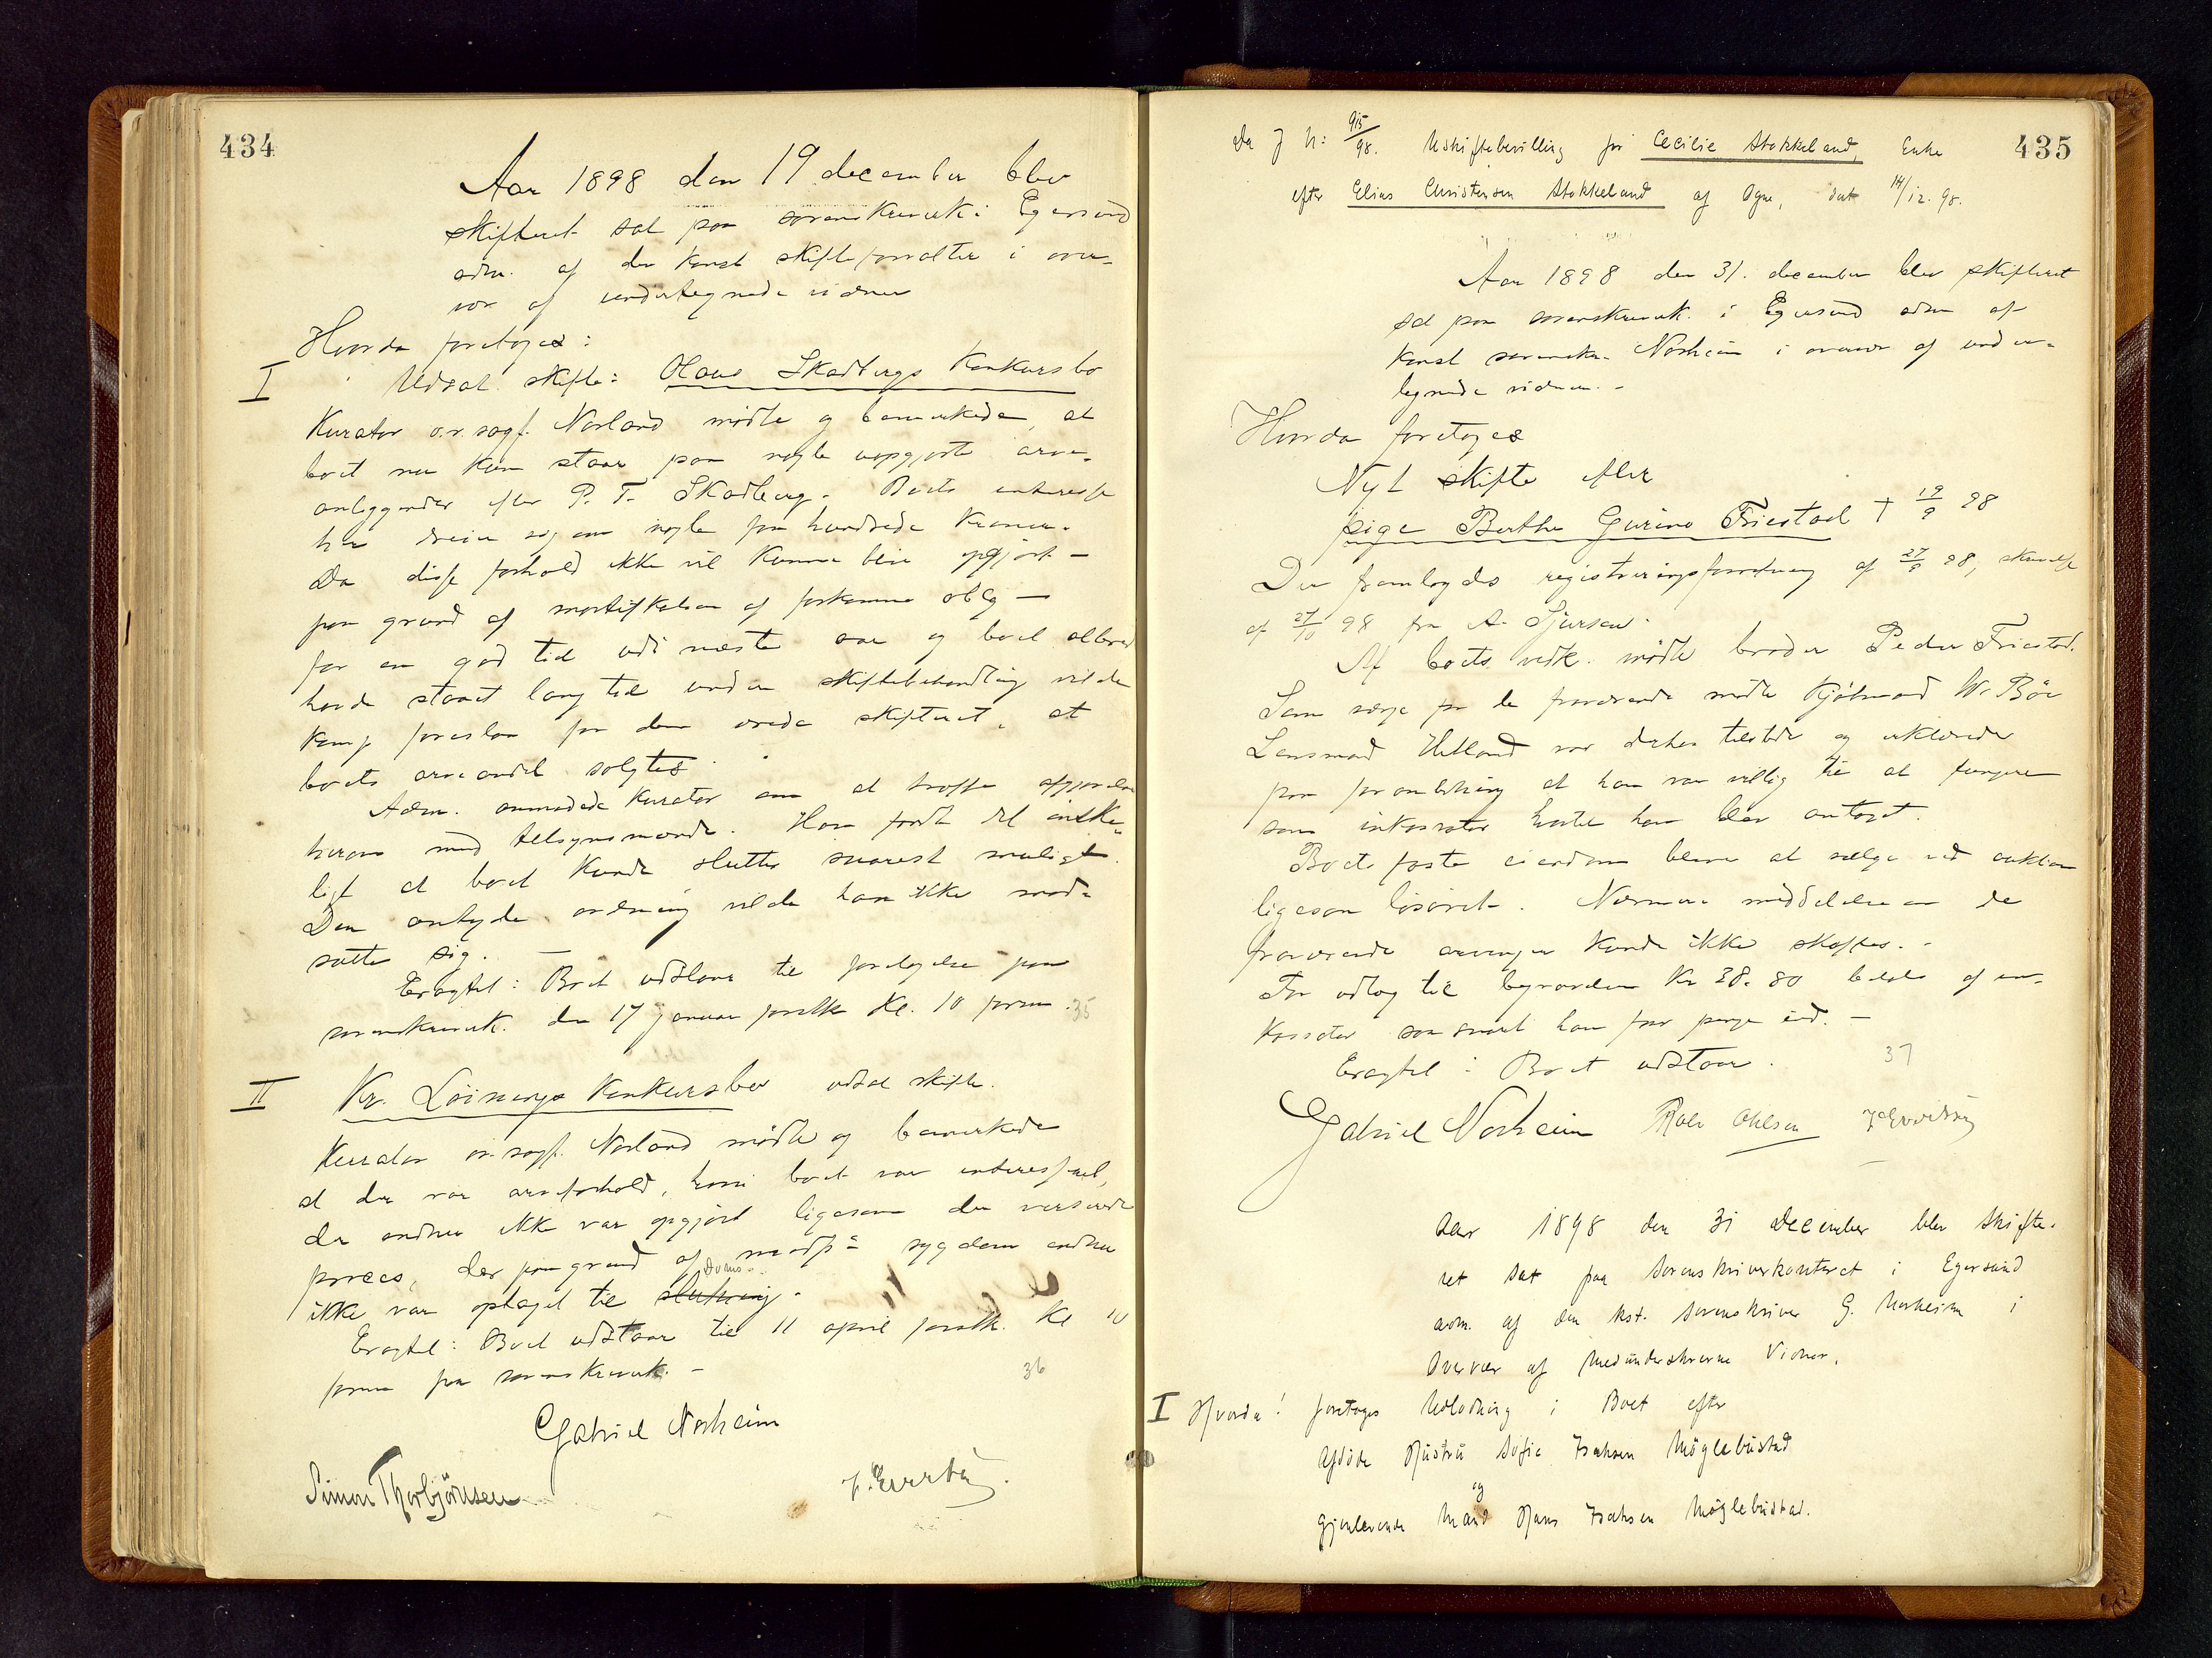 434
Aar 1898 den 19 december blev
skifteret sat paa sorenskriverk. i Egersund
adm. af den konst skifteforvalter i over-
vær af undertegnede vidner
Hvorda foretoges:
I Udsat skifte: Hans Skadbergs Konkursbo
Kurator o.r.sagf. Norland mødte og bemærkede, at
boet nu kun staar paa nogle uopgjorte arve-
anliggender efter P. T. Skadberg. Boets interesse
her dreier sig om nogle faa hundrede kroner.
Da disse forhold ikke vil kunne blive opgjort –
paa grund af mortifikation af forkomne oblg –
før en god tid udi næste aar og boet allered
havde staaet lang tid under skiftebehandling vilde
komp foreslaa for den ærede skifteret, at
boets arveandel solgtes.
Adm. anmodede kurator om at træffe afgjørelse
herom med tilsynsmænd. Han fandt det ønske-
ligt at boet kunde sluttes snarest muligt.
Den antydede ordning vilde han ikke mod-
sætte sig. –
Eragtet: Boet udstaar til foretagelse paa
sorenskriverk. den 17 januar førstk Kl. 10 form. 35
II Kr. Løinings Konkursbo udsat skifte.
Kurator o.r.sagf. Norland mødte og bemærkede
at der var arveforhold, hvori boet var interesseret,
der endnu ikke var opgjort ligesom den verserende
proces, der paa grund af modp's sygdom endnu
ikke var optaget til slutning. Doms
Eragtet: Boet udstaar til 11 april førstk. Kl 10
form paa sorenskriverk. –
36
Gabriel Norheim
Simon Thorbjörnsen
435
Da J N: 915/98. Uskiftebevilling for Cecilie Stokkeland, Enke
efter Elias Christensen Stokkeland af Ogne, dat 14/12. 98.
Aar 1898 den 31. december blev skifteret
sat paa sorenskriverk. i Egersund adm af
konst sorenskr. Norheim i overvær af under-
tegnede vidner. –
Hvorda foretoges
Nyt skifte efter
pige Berthe Gurine Friestad † 19/9 98
Der fremlagdes registreringsforretning af 27/9 98, skrivelse
af 27/10 98 fra A. Sjursen.
Af boets vedk. mødte broder Peder Friestad.
Som værge for de fraværende mødte Kjøbmand W. Böe
Lensmand Hetland var derhos tilstede og erklærede
paa foranledning at han var villig til at fungere
som inkassator hvortil han blev antaget.
Boets faste eiendom bliver at sælge ved auktion
ligesom løsøret. Nærmere meddelelse om de
fraværende arvinger kunde ikke skaffes. –
For udlæg til begravelsen Kr 38.80 betales af in-
kassator saa snart han faar penge ind. –
Eragtet: Boet udstaar.
37
Gabriel Norheim Ohlsen
Aar 1898 den 31 December blev Skifte-
ret sat paa Sorenskriverkontoret i Egersund
adm. af den kst. Sorenskriver G. Norheim i
Overvær af medunderskrevne Vidner.
I Hvorda! foretoges Udlodning i Boet efter
afdøde Hustru Sofie Isaksen Møglebustad
og
gjenlevende Mand Hans Isaksen Møglebustad.